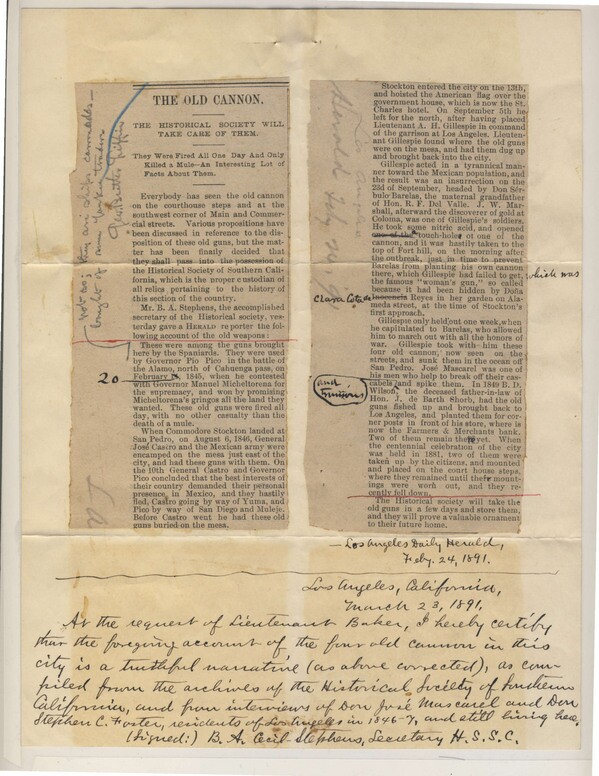 THE OLD CANNON.
THE HISTORICAL SOCIETY WILL
TAKE CARE OF THEM.
They Were Fired All One Day And Only
Killed a Mule—An Interesting Lot of
Facts About Them.
Everybody has seen the old cannon
on the courthouse steps and at the
southwest corner of Main and Commer-
cial streets. Various propositions have
been discussed in reference to the dis-
position of these old guns, but the mat-
ter has been finally decided that
they shall pass into the possession of
the Historical Society of Southern Cali-
fornia, which is the proper custodian of
all relics pertaining to the history of
this section of the country.
Mr. B. A. Stephens, the accomplished
secretary of the Historical society, yes-
terday gave a HERALD reporter the fol-
lowing account of the old weapons:
These were among the guns brought
here by the Spaniards. They were used
by Governor Pio Pico in the battle of the
Alamo, north of Cahuenga pass, on
20
February 18, 1845, when he contested
with Governor Manuel Micheltorena for
the supremacy, and won by promising
Micheltorena's gringos all the land they
wanted. These old guns were fired all
day, with no other casualty than the
death of a mule.
When Commodore Stockton landed at
San Pedro, on August 6, 1846, General
José Castro and the Mexican army were
encamped on the mesa just east of the
city, and had these guns with them. On
the 10th General Castro and Governor
Pico concluded that the best interests of
their country demanded their personal
presence in Mexico, and they hastily
fled, Castro going by way of Yuma, and
Pico by way of San Diego and Muleje.
Before Castro went he had these old
guns buried on the mesa.
Not so; they are ship's cannonades—
bought of some Yankee traders
Stockton entered the city on the 13th,
and hoisted the American flag over the
government house, which is now the St.
Charles hotel. On September 5th he
left for the north, after having placed
Lieutenant A. H. Gillespie in command
of the garrison at Los Angeles. Lieuten-
ant Gillespie found where the old guns
were on the mesa, and had them dug up
and brought back into the city.
Gillespie acted in a tyrannical man-
ner toward the Mexican population, and
the result was an insurrection on the
23d of September, headed by Don Sér-
bulo Barelas, the maternal grandfather
of Hon. R. F. Del Valle. J. W. Mar-
shall, afterward the discoverer of gold at
Coloma, was one of Gillespie's soldiers.
He took some nitric acid, and opened
one of the touch-holes of one of the
cannon, and it was hastily taken to the
top of Fort hill, on the morning after
the outbreak, just in time to prevent
Barelas from planting his own cannon
there, which Gillespie had failed to get,
which was
the famous "woman's gun," so called
because it had been hidden by Doña
Clara Cota de
Inocencia Reyes in her garden on Ala-
meda street, at the time of Stockton's
first approach.
Gillespie only held out one week, when
he capitulated to Barelas, who allowed
him to march out with all the honors of
war. Gillespie took with him these
four old cannon; now seen on the
streets, and sunk them in the ocean off
San Pedro. José Mascarel was one of
his men who help to break off their cas-
cabels and spike them. In 1849 B. D.
and trunnions
Wilson, the deceased father-in-law of
Hon. J. de Barth Shorb, had the old
guns fished up and brought back to
Los Angeles, and planted them for cor-
ner posts in front of his store, where is
now the Farmers & Merchants bank.
Two of them remain there yet. When
the centennial celebration of the city
was held in 1881, two of them were
taken up by the citizens, and mounted
and placed on the court house steps,
where they remained until their mount-
ings were worn out, and they re-
cently fell down.
The Historical society will take the
old guns in a few days and store them,
and they will prove a valuable ornament
to their future home.
Los Angeles
Herald Feby 24, 91
— Los Angeles Daily Herald,
Feby. 24, 1891.
Los Angeles, California,
March 23, 1891.
At the request of Lieutenant Baker, I hereby certify
that the foregoing account of the four old cannon in this
city is a truthful narrative (as above corrected), as com-
piled from the archives of the Historical Society of Southern
California, and from interviews of Don José Mascarel and Don
Stephen C. Foster, residents of Los Angeles in 1846-7, and still living here.
(Signed:) B. A. Cecil-Stephens, Secretary H. S. S. C.